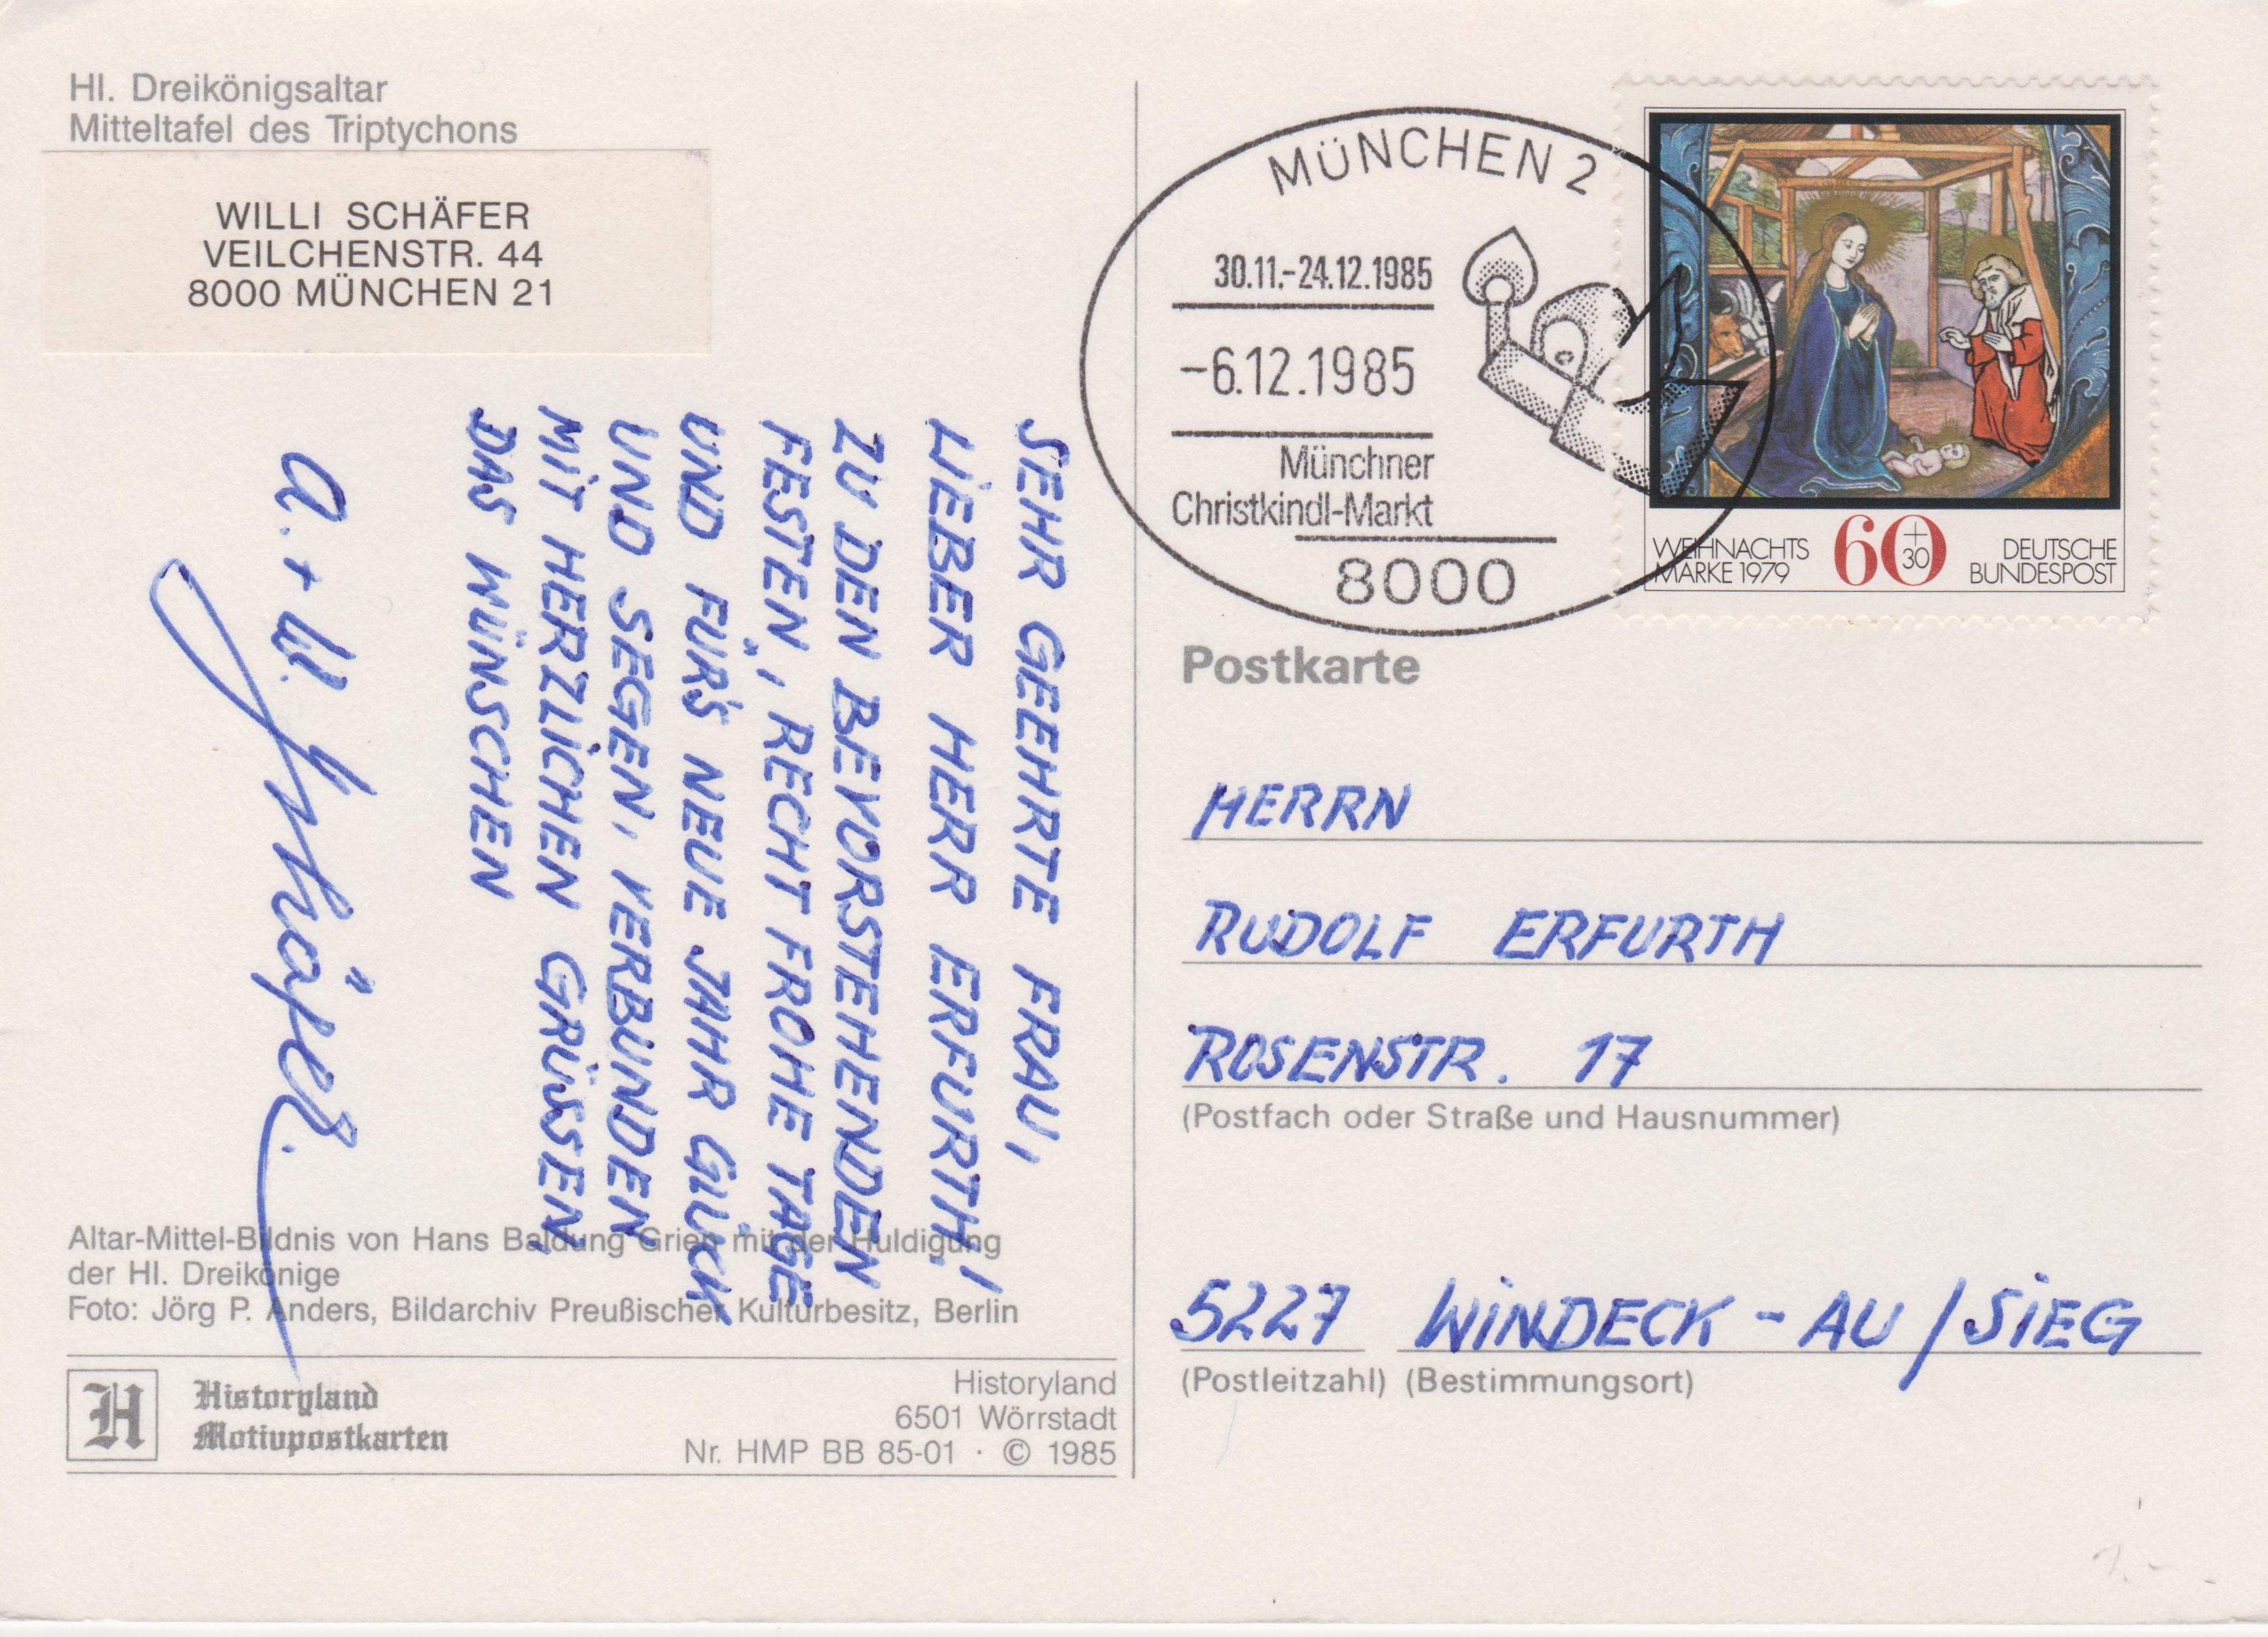 Hl. Dreikönigsaltar
Mitteltafel des Triptychons
WILLI SCHÄFER
VEILCHENSTR. 44
8000 MÜNCHEN 21
SEHR GEEHRTE FRAU,
LIEBER HERR ERFURTH!
ZU DEN BEVORSTEHENDEN
FESTEN, RECHT FROHE TAGE
UND FÜR'S NEUE JAHR GLÜCK
UND SEGEN, VERBUNDEN
MIT HERZLICHEN GRÜSSEN,
DAS WÜNSCHEN
A. + W. Schäfer.
Altar-Mittel-Bildnis von Hans Baldung Grien mit der Huldigung
der Hl. Dreikönige
Foto: Jörg P. Anders, Bildarchiv Preußischer Kulturbesitz, Berlin
H
Historyland
Motivpostkarten
Historyland
6501 Wörrstadt
Nr. HMP BB 85-01 · © 1985
MÜNCHEN 2
30.11.-24.12.1985
-6.12.1985
Münchner
Christkindl-Markt
8000
WEIHNACHTS
MARKE 1979
60
+
30
DEUTSCHE
BUNDESPOST
Postkarte
HERRN
RUDOLF ERFURTH
ROSENSTR. 17
(Postfach oder Straße und Hausnummer)
5227 WINDECK - AU / SIEG
(Postleitzahl) (Bestimmungsort)
1.-